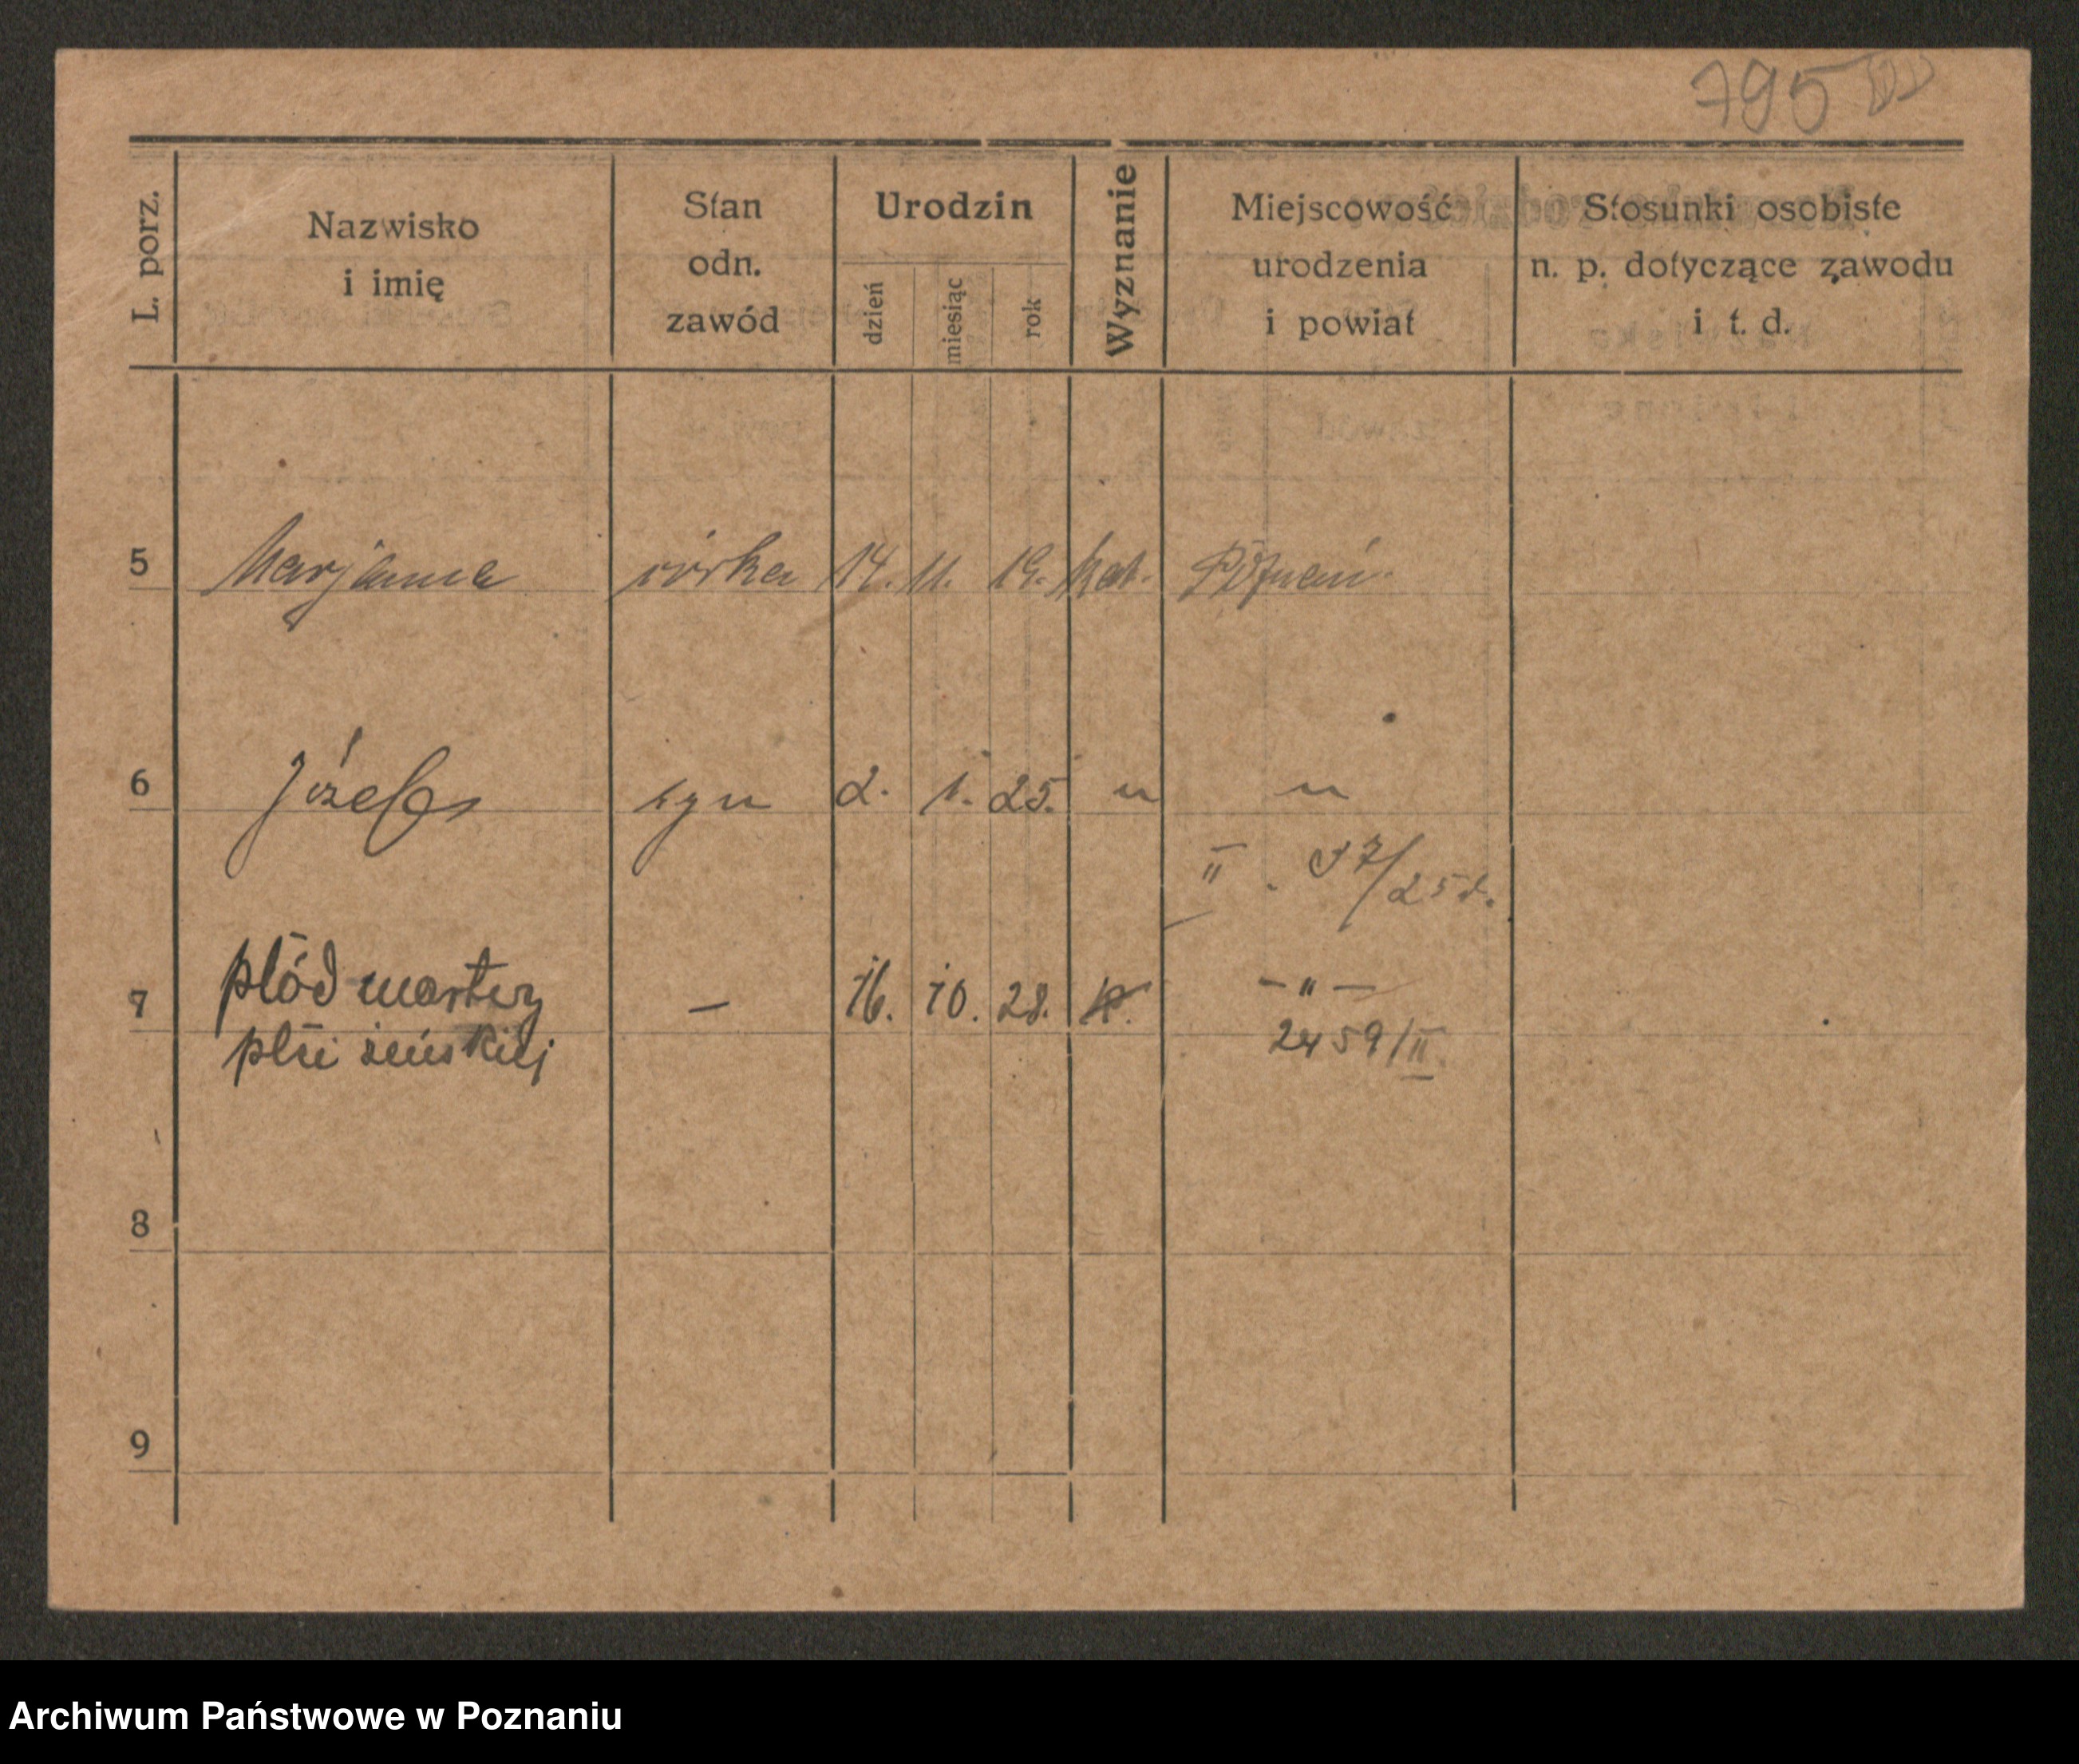 795
L. porz.
Nazwisko
i imię
Stan
odn.
zawód
Urodzin
dzień
miesiąc
rok
Wyznanie
Miejscowość
urodzenia
i powiat
Stosunki osobiste
n. p. dotyczące zawodu
i t. d.
5 Marjanna córka 14. 11. 19. kat. Poznań.
6 Józef syn 2. 1. 25. " "
II 37/25 r.
7 płód martwy — 16. 10. 28. K. — " —
płci żeńskiej 2459/II
8
9
Archiwum Państwowe w Poznaniu